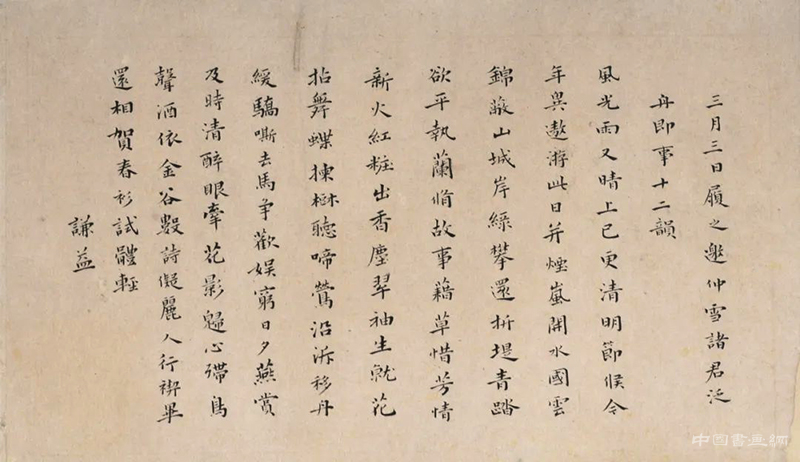 三月三日履之邀仲雪諸君泛
舟即事十二韻
風光雨又晴上巳更清明節候今
年異遨游此日并煙嵐開水國雲
錦蔽山城岸綠攀還折堤青踏
欲平執蘭脩故事藉草惜芳情
新火紅粧出香塵翠袖生就花
拈舞蝶揀樹聽啼鶯沿泝移舟
緩驕嘶去馬爭歡娱窮日夕燕賞
及時清醉眼牽花影歸心殢鳥
聲酒依金谷數詩儗麗人行禊畢
還相賀春衫試體輕
謙益
中国書画網